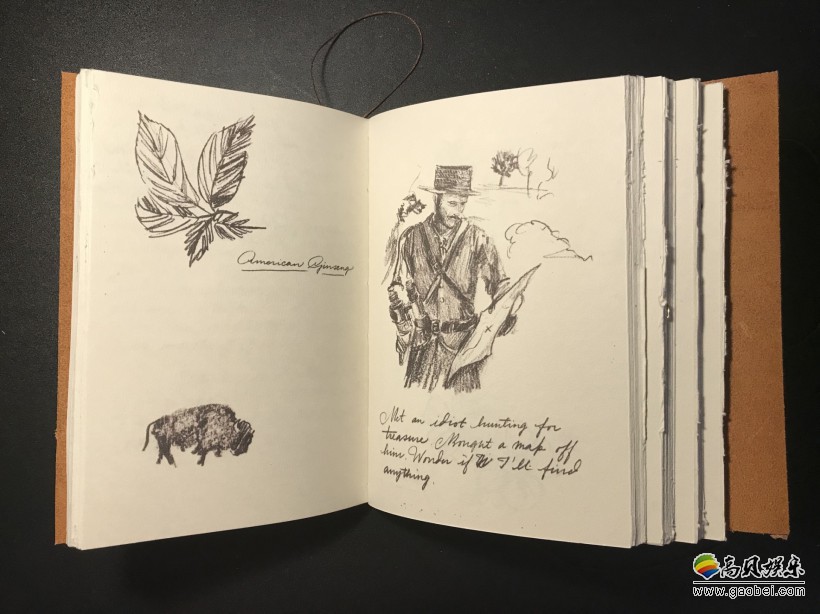 American Ginseng
Met an idiot hunting for
treasure. Mougut a map off
him. Wonder if I'll find
anything.
高贝娱乐
www.gaobei.com